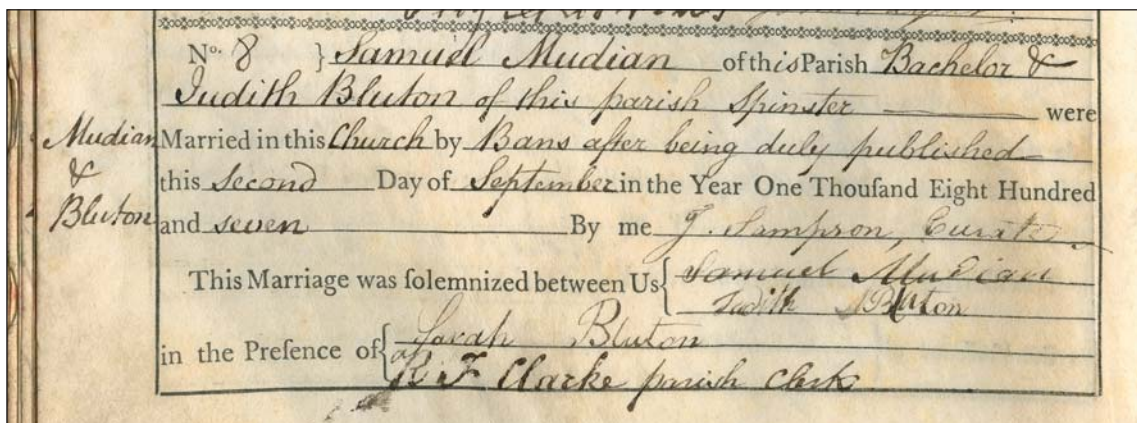 No. 8 } Samuel Mudian of this Parish Bachelor &
Judith Bluton of this parish Spinster were
Mudian & Bluton
Married in this Church by Bans after being duly published
this Second Day of September in the Year One Thouſand Eight Hundred
and seven By me J. Sampson, Curate
This Marriage was ſolemnized between Us { Samuel Mudian
Judith Bluton
in the Preſence of { Sarah Bluton
R F Clarke parish Clerk